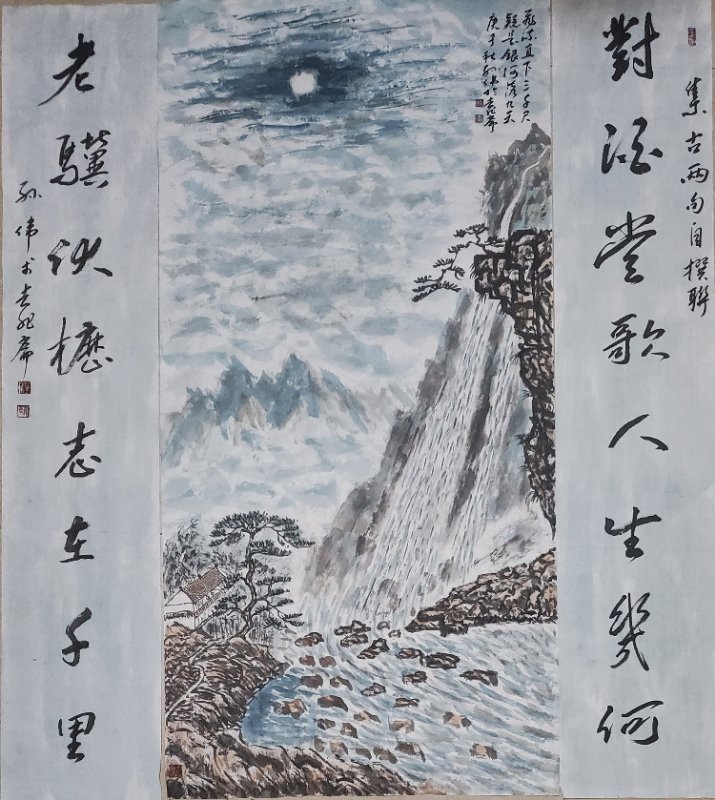 集古兩句自撰聯
對酒當歌人生幾何
飛流直下三千尺
疑是銀河落九天
庚子秋孙伟
老驥伏櫪志在千里
孙伟